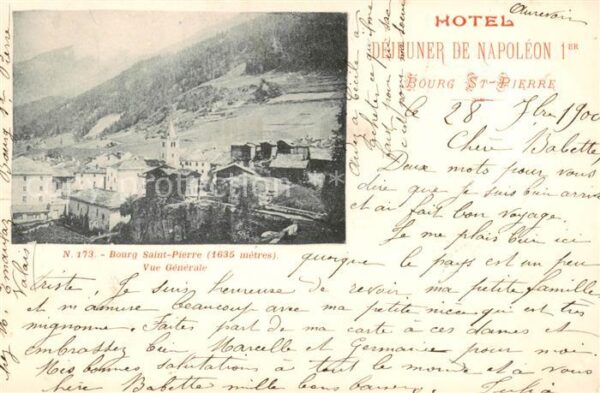 Aurevoir
HOTEL
DÉJEUNER DE NAPOLÉON 1ER
BOURG ST-PIERRE
le 28 7bre 1900
Chère Babette,
Deux mots pour vous
dire que je suis bien arrivé
et ai fait bon voyage.
Je me plais bien ici
quoique le pays est un peu
triste, Je suis heureuse de revoir ma petite famille
et m'amuse beaucoup avec ma petite nièce qui est très
mignonne. Faites part de ma carte à ces dames et
embrassez bien Marcelle et Germaine pour moi.
Mes bonnes salutations à tout le monde et à vous
chère Babette mille bons baisers. Julia
N. 173. - Bourg Saint-Pierre (1635 mètres).
Vue Générale
copyright-protection
Bourg St Pierre
Valais